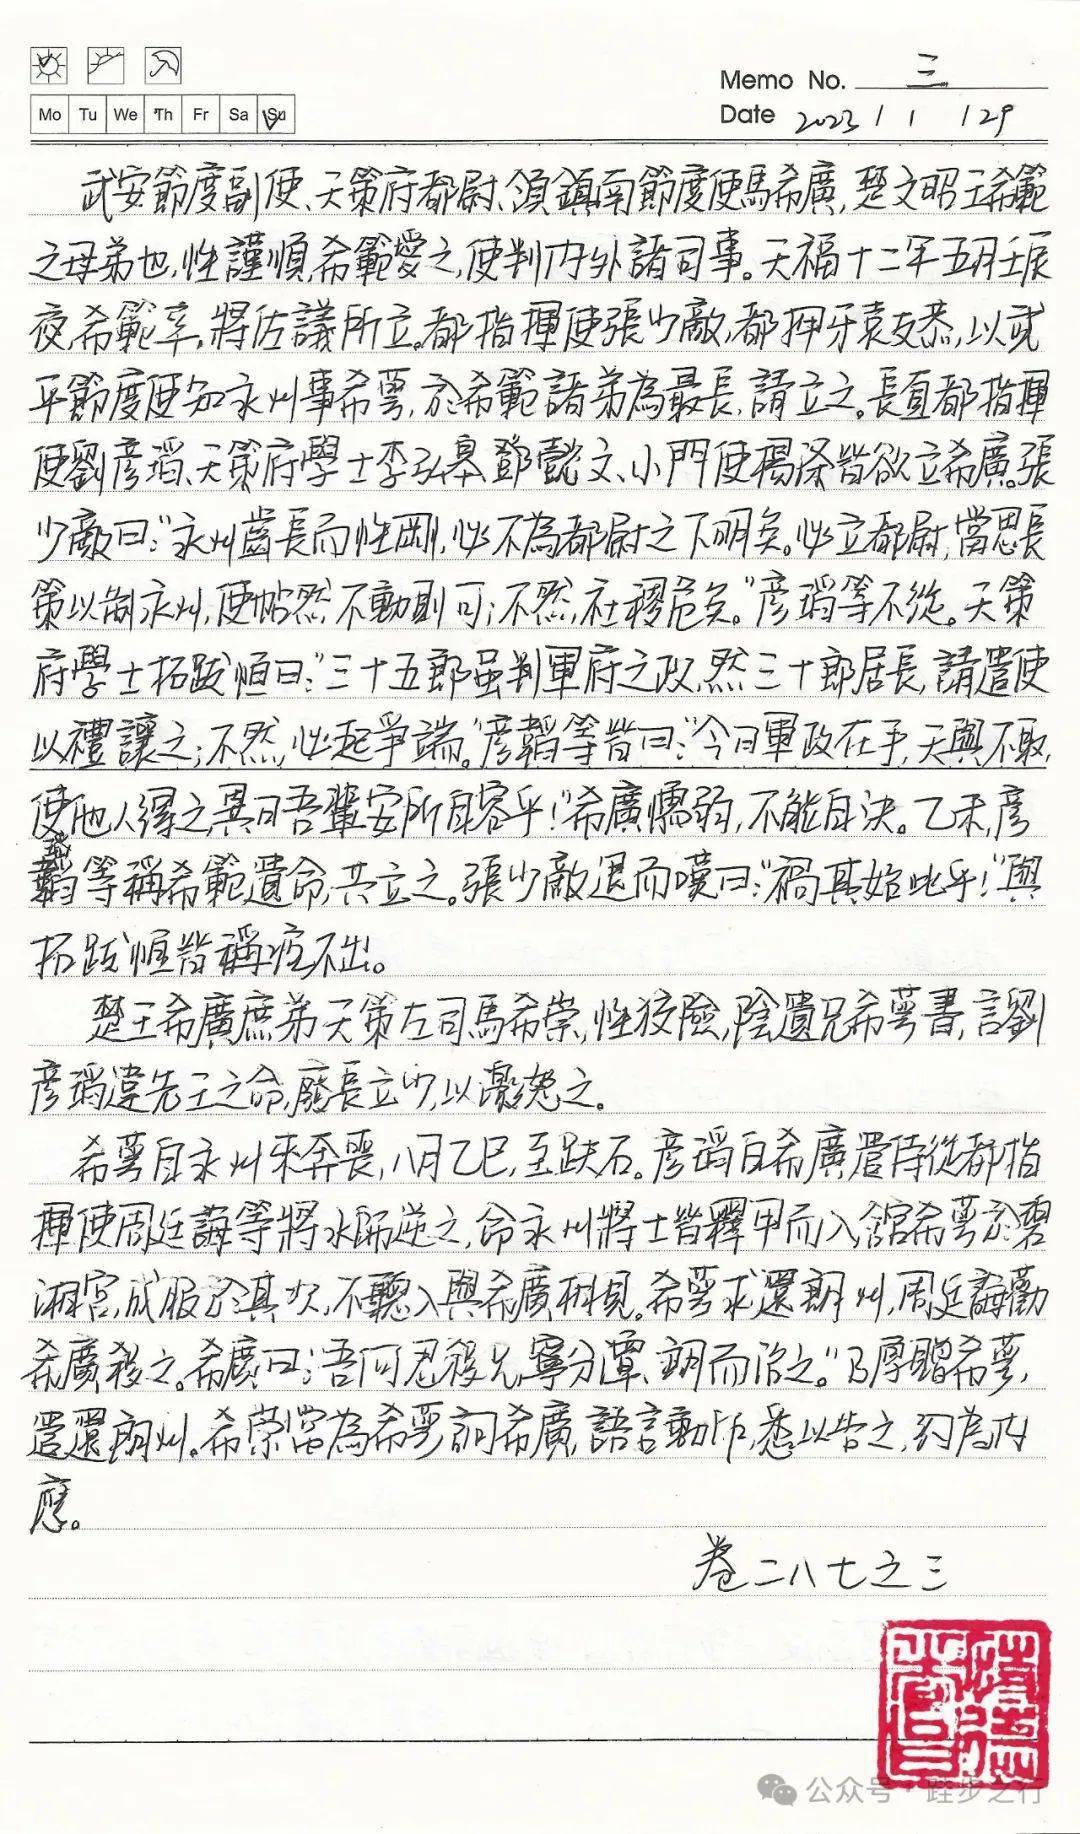 Memo No. 三
Mo Tu We Th Fr Sa Su
Date 2023 / 1 / 29
武安節度副使、天策府都尉、領鎮南節度使馬希廣，楚文昭王希範
之母弟也，性謹順，希範愛之，使判內外諸司事。天福十二年五月壬辰
夜，希範卒。將佐議所立。都指揮使張少敵，都押牙袁友恭，以武
平節度使知永州事希萼，於希範諸弟為最長，請立之。長直都指揮
使劉彥瑫、天策府學士李弘皋、鄧懿文、小門使楊滌皆欲立希廣。張
少敵曰：“永州齒長而性剛，必不為都尉之下明矣。必立都尉，當思長
策以制永州，使帖然不動則可；不然，社稷危矣。”彥瑫等不從。天策
府學士拓跋恒曰：“三十五郎雖判軍府之政，然三十郎居長，請遣使
以禮讓之；不然，必起爭端。”彥韜等皆曰：“今日軍政在手，天與不取，
使他人得之，異日吾輩安所自容乎！”希廣懦弱，不能自決。乙未，彥
瑫等稱希範遺命，共立之。張少敵退而嘆曰：“禍其始此乎！”與
拓跋恒皆稱疾不出。
楚王希廣庶弟天策左司馬希崇，性狡險，陰遺兄希萼書，言劉
彥瑫違先王之命，廢長立少，以激怒之。
希萼自永州來奔喪，八月乙巳，至趺石。彥瑫白希廣遣侍從都指
揮使周廷誨等將水師逆之，命永州將士皆釋甲而入，館希萼於碧
湘宮，成服於其次，不聽入與希廣相見。希萼求還朗州，周廷誨勸
希廣殺之。希廣曰：“吾何忍殺兄，寧分潭、朗而治之。”乃厚贈希萼，
遣還朗州。希崇常為希萼詗希廣，語言動作，悉以告之，約為內
應。
卷二八七之三
公众号 · 跬步之行